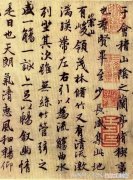 會稽山陰之蘭亭
也羣賢畢至少長咸集此地
有崇山峻領茂林脩竹又有清流激
湍暎帶左右引以為流觴曲水
列坐其次雖無絲竹管弦之
盛一觴一詠亦足以暢敘幽情
是日也天朗氣清惠風和暢仰